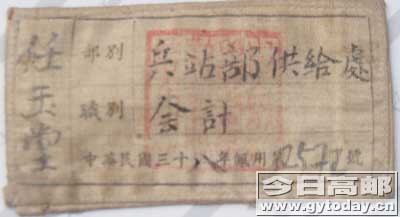 任玉堂
部別 兵站部供給處
職別 会計
中華民國三十八年佩用 第2578號
今日高邮
www.gytoday.cn